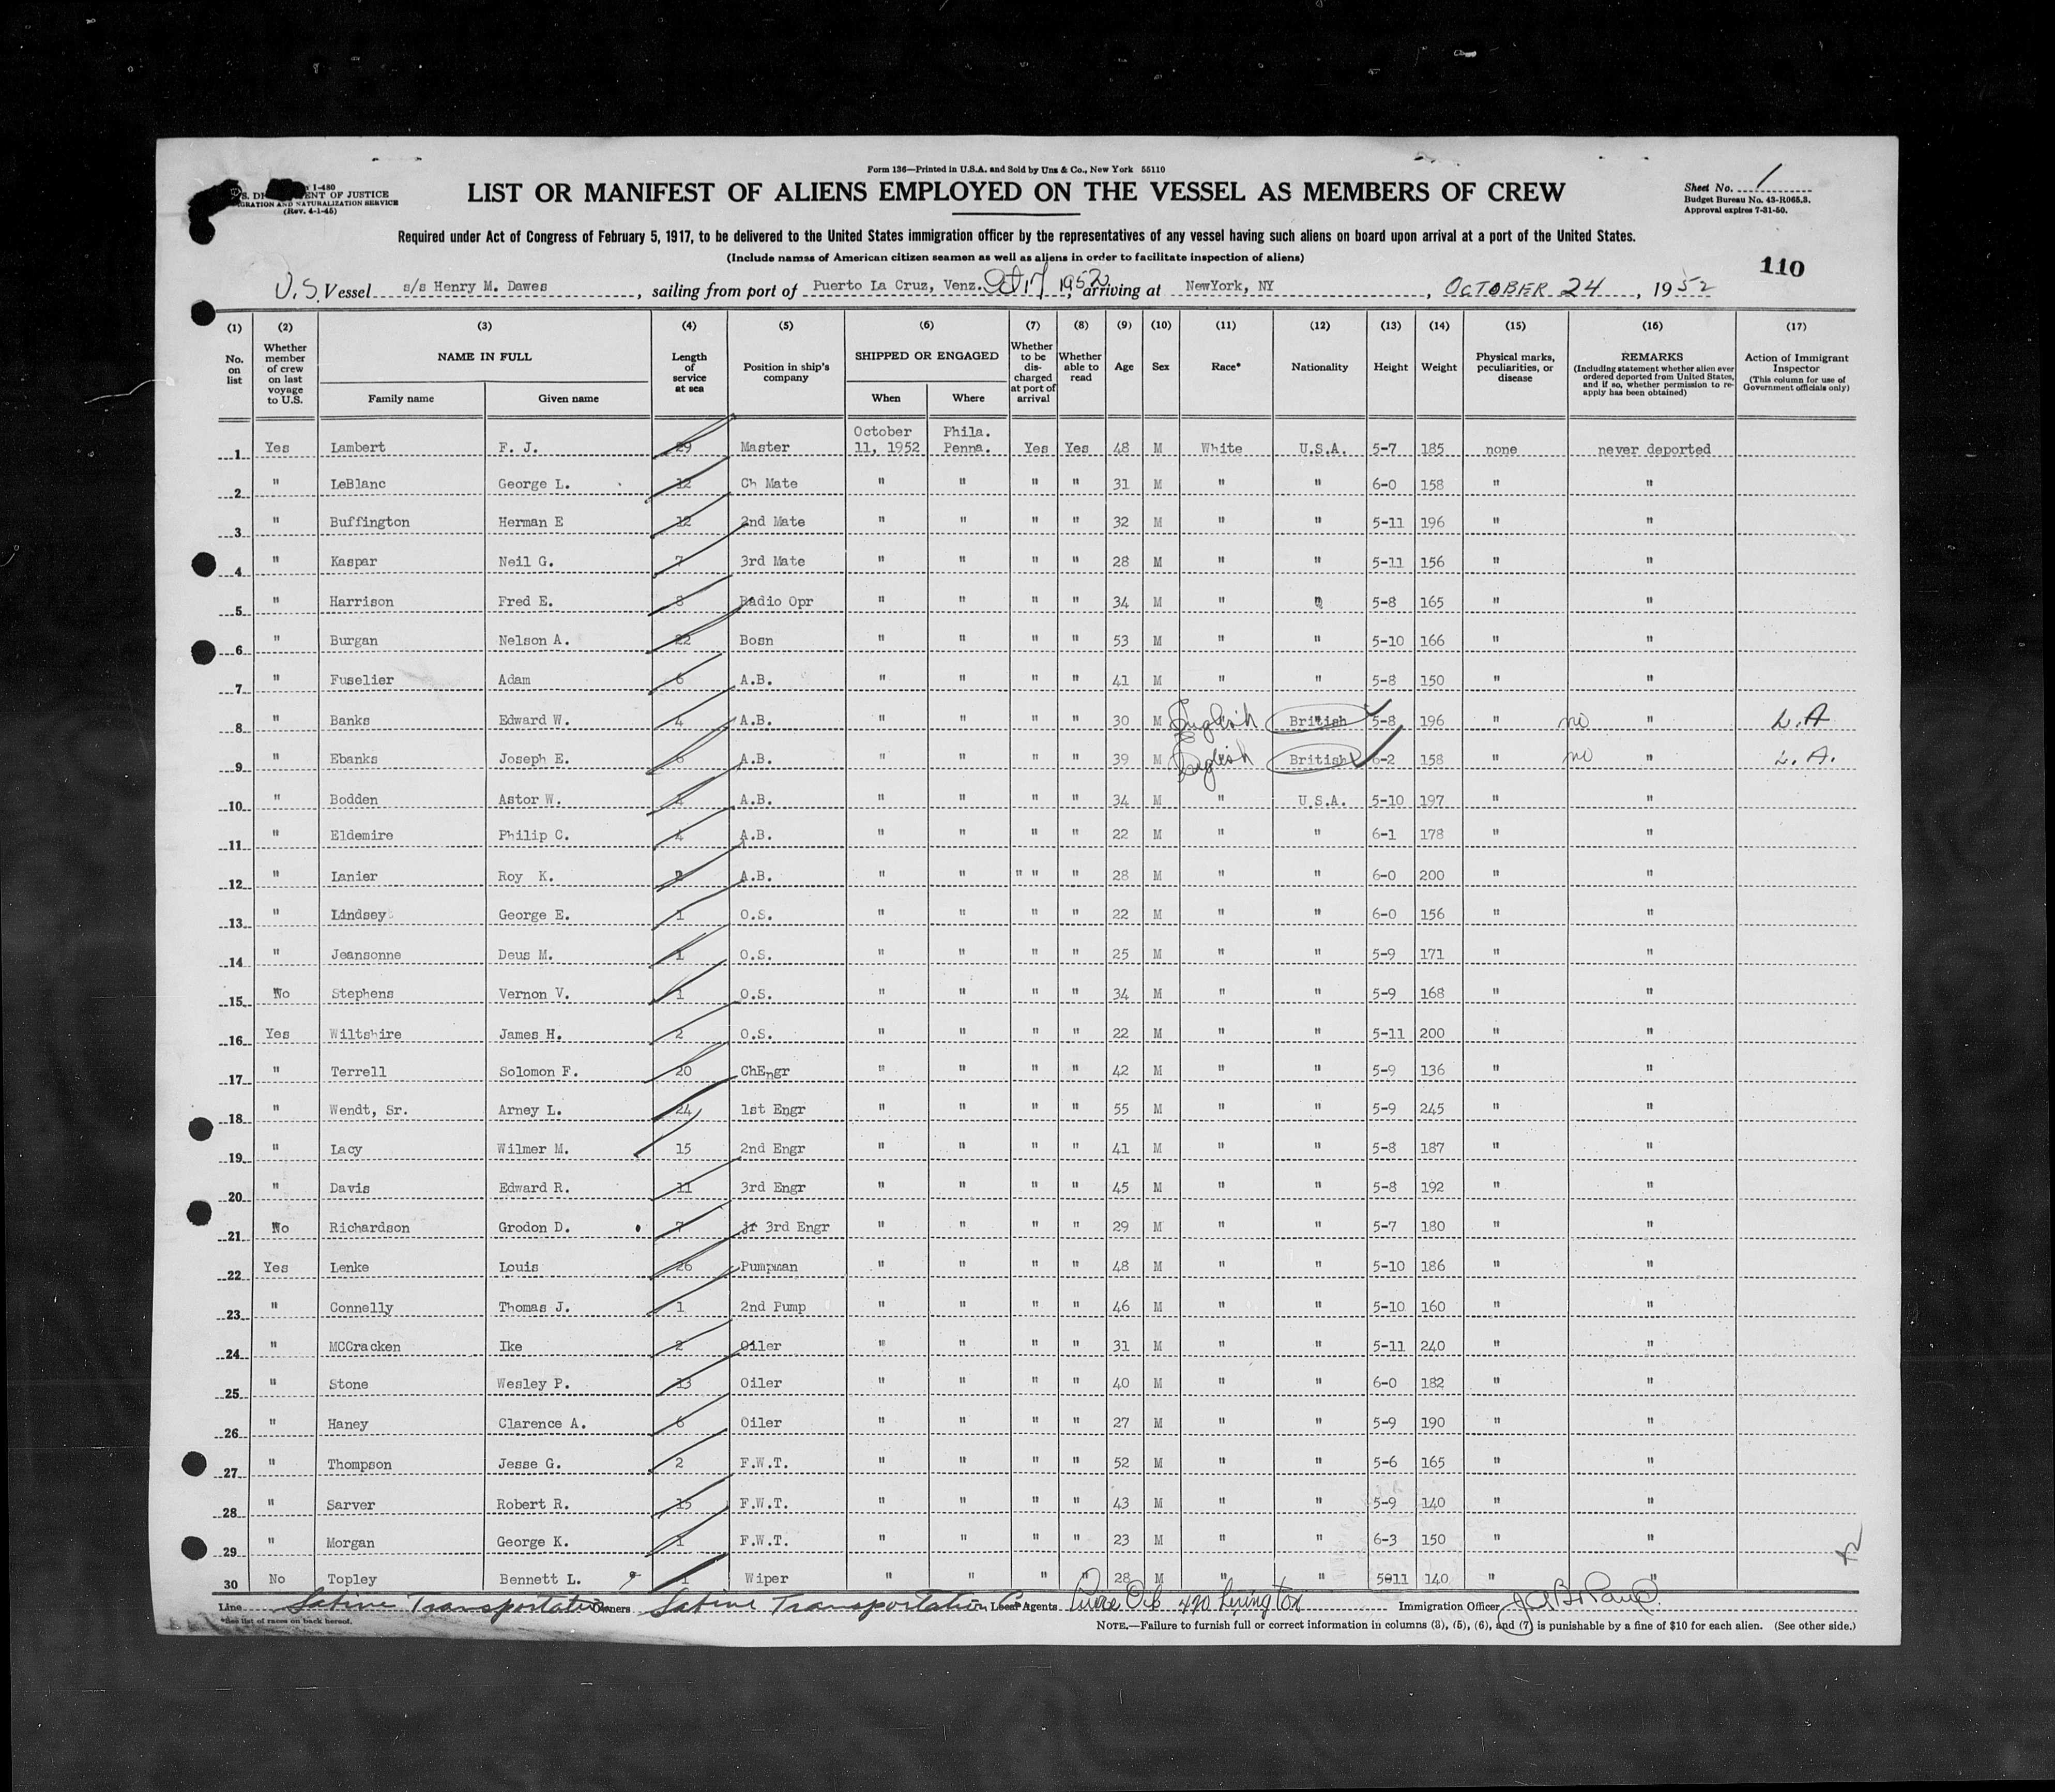 Form 136—Printed in U.S.A. and Sold by Unz & Co., New York 55110
1-480
ENT OF JUSTICE
IGRATION AND NATURALIZATION SERVICE
(Rev. 4-1-45)
LIST OR MANIFEST OF ALIENS EMPLOYED ON THE VESSEL AS MEMBERS OF CREW
Sheet No. 1
Budget Bureau No. 43-R065.3.
Approval expires 7-31-50.
Required under Act of Congress of February 5, 1917, to be delivered to the United States immigration officer by the representatives of any vessel having such aliens on board upon arrival at a port of the United States.
(Include names of American citizen seamen as well as aliens in order to facilitate inspection of aliens)
110
U.S. Vessel s/s Henry M. Dawes, sailing from port of Puerto La Cruz, Venz. Oct 17, 1952, arriving at NewYork, NY, OCTOBER 24, 1952
(1) (2) (3) (4) (5) (6) (7) (8) (9) (10) (11) (12) (13) (14) (15) (16) (17)
No. on list | Whether member of crew on last voyage to U.S. | NAME IN FULL Family name Given name | Length of service at sea | Position in ship's company | SHIPPED OR ENGAGED When Where | Whether to be discharged at port of arrival | Whether able to read | Age | Sex | Race* | Nationality | Height | Weight | Physical marks, peculiarities, or disease | REMARKS (Including statement whether alien ever ordered deported from United States, and if so, whether permission to re-apply has been obtained) | Action of Immigrant Inspector (This column for use of Government officials only)
1 Yes Lambert F. J. 29 Master October 11, 1952 Phila. Penna. Yes Yes 48 M White U.S.A. 5-7 185 none never deported
2 " LeBlanc George L. 12 Ch Mate " " " " 31 M " " 6-0 158 " "
3 " Buffington Herman E 12 2nd Mate " " " " 32 M " " 5-11 196 " "
4 " Kaspar Neil G. 7 3rd Mate " " " " 28 M " " 5-11 156 " "
5 " Harrison Fred E. 8 Radio Opr " " " " 34 M " " 5-8 165 " "
6 " Burgan Nelson A. 22 Bosn " " " " 53 M " " 5-10 166 " "
7 " Fuselier Adam 6 A.B. " " " " 41 M " " 5-8 150 " "
8 " Banks Edward W. 4 A.B. " " " " 30 M English British 5-8 196 " no " L.A
9 " Ebanks Joseph E. 6 A.B. " " " " 39 M English British 6-2 158 " no " L.A.
10 " Bodden Astor W. A.B. " " " " 34 M " U.S.A. 5-10 197 " "
11 " Eldemire Philip C. 4 A.B. " " " " 22 M " " 6-1 178 " "
12 " Lanier Roy K. 2 A.B. " " " " " 28 M " " 6-0 200 " "
13 " Lindsey George E. 1 O.S. " " " " 22 M " " 6-0 156 " "
14 " Jeansonne Deus M. 1 O.S. " " " " 25 M " " 5-9 171 " "
15 No Stephens Vernon V. 1 O.S. " " " " 34 M " " 5-9 168 " "
16 Yes Wiltshire James H. 2 O.S. " " " " 22 M " " 5-11 200 " "
17 " Terrell Solomon F. 20 ChEngr " " " " 42 M " " 5-9 136 " "
18 " Wendt, Sr. Arney L. 24 1st Engr " " " " 55 M " " 5-9 245 " "
19 " Lacy Wilmer M. 15 2nd Engr " " " " 41 M " " 5-8 187 " "
20 " Davis Edward R. 11 3rd Engr " " " " 45 M " " 5-8 192 " "
21 No Richardson Grodon D. 7 jr 3rd Engr " " " " 29 M " " 5-7 180 " "
22 Yes Lenke Louis 26 Pumpman " " " " 48 M " " 5-10 186 " "
23 " Connelly Thomas J. 1 2nd Pump " " " " 46 M " " 5-10 160 " "
24 " MCCracken Ike 2 Oiler " " " " 31 M " " 5-11 240 " "
25 " Stone Wesley P. 13 Oiler " " " " 40 M " " 6-0 182 " "
26 " Haney Clarence A. 6 Oiler " " " " 27 M " " 5-9 190 " "
27 " Thompson Jesse G. 2 F.W.T. " " " " 52 M " " 5-6 165 " "
28 " Sarver Robert R. 15 F.W.T. " " " " 43 M " " 5-9 140 " "
29 " Morgan George K. 1 F.W.T. " " " " 23 M " " 6-3 150 " "
30 No Topley Bennett L. 1 Wiper " " " " 28 M " " 5011 140 " "
Line Sabine Transportation Owners Sabine Transportation Co Local Agents Pure Oil 420 Lexington Immigration Officer
*See list of races on back hereof.
NOTE.—Failure to furnish full or correct information in columns (3), (5), (6), and (7) is punishable by a fine of $10 for each alien. (See other side.)